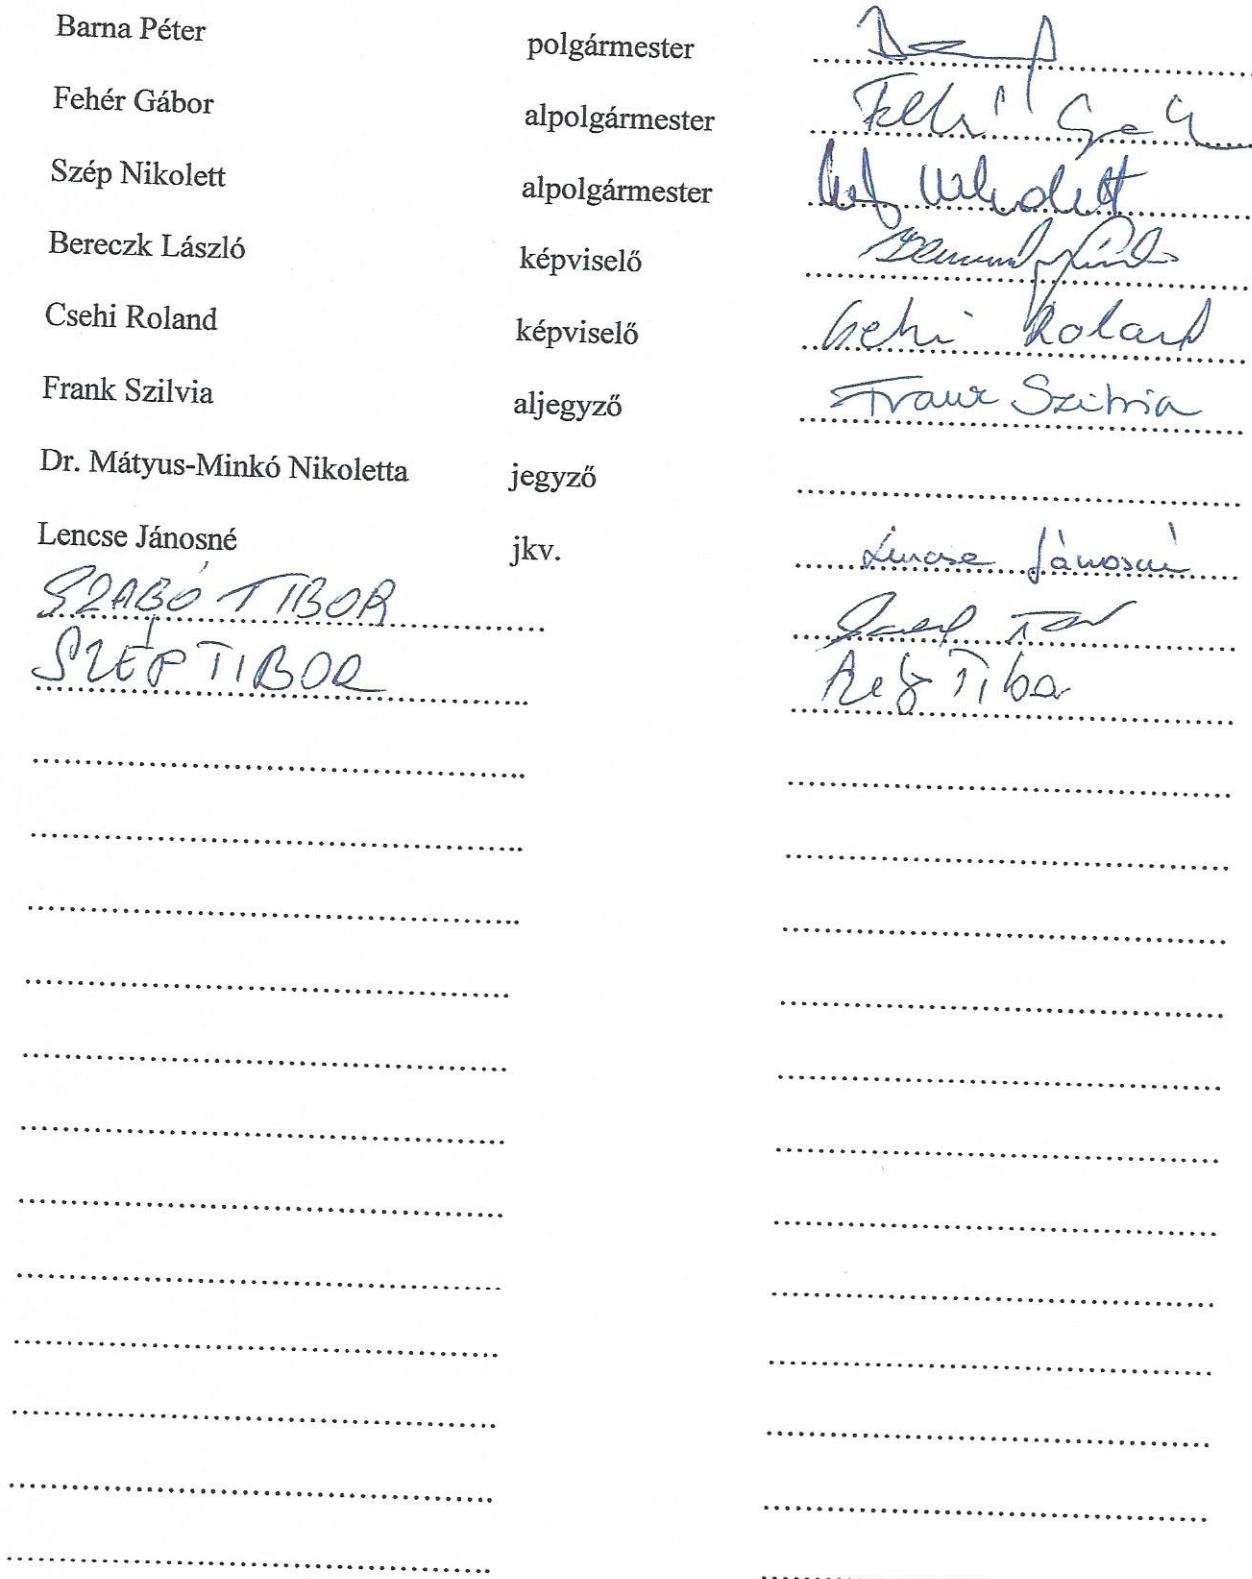 Barna Péter polgármester
Fehér Gábor alpolgármester
Szép Nikolett alpolgármester
Bereczk László képviselő
Csehi Roland képviselő Csehi Roland
Frank Szilvia aljegyző Frank Szilvia
Dr. Mátyus-Minkó Nikoletta jegyző
Lencse Jánosné jkv. Lencse Jánosné
SZABÓ TIBOR
SZÉP TIBOR Szép Tibor